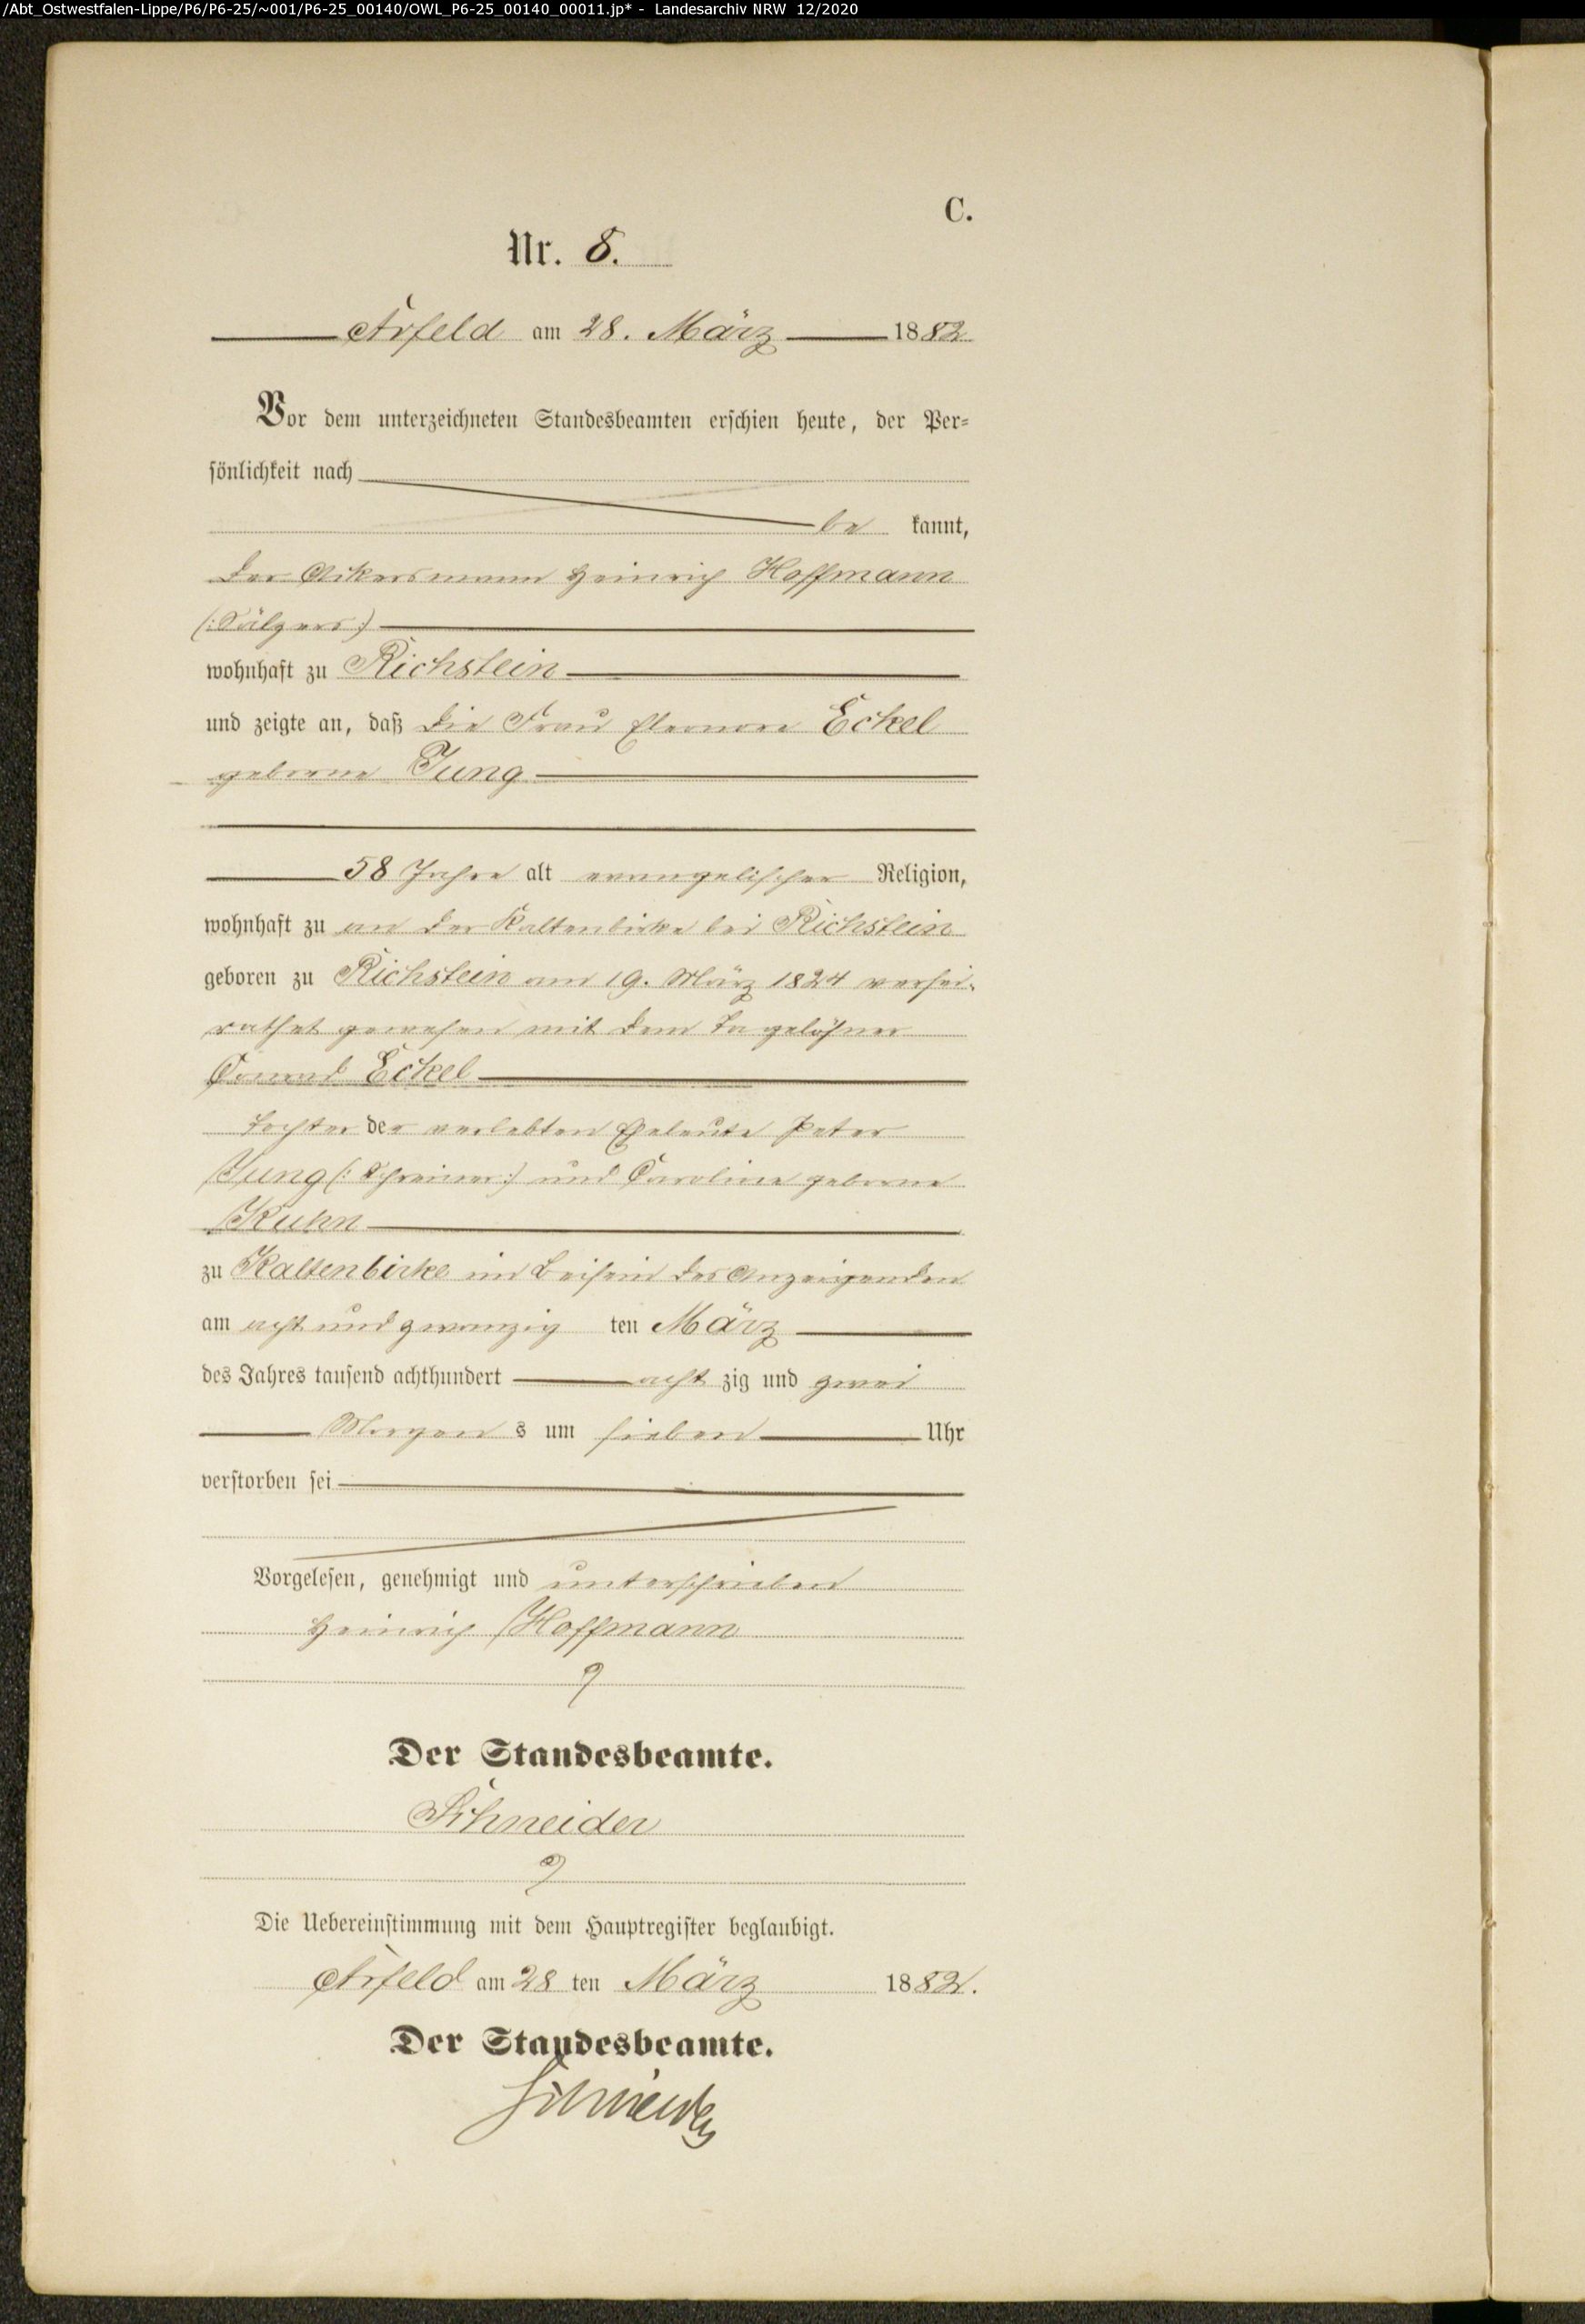 /Abt_Ostwestfalen-Lippe/P6/P6-25/~001/P6-25_00140/OWL_P6-25_00140_00011.jp* - Landesarchiv NRW 12/2020
C.
Nr. 8.
Arfeld am 28. März 1882
Vor dem unterzeichneten Standesbeamten erschien heute, der Per-
sönlichkeit nach
be kannt,
der Ackersmann Heinrich Hoffmann
(: Sälzers :)
wohnhaft zu Richstein
und zeigte an, daß die Frau Eleonore Eckel
geborne Jung
58 Jahre alt evangelischer Religion,
wohnhaft zu an der Kaltenbirke bei Richstein
geboren zu Richstein am 19. März 1824 verhei-
rathet gewesen mit dem Tagelöhner
Conrad Eckel
Tochter der verlebten Eheleute Peter
Jung (: Schreiner :) und Caroline geborne
Kuhn
zu Kaltenbirke im Beisein des Anzeigenden
am acht und zwanzig ten März
des Jahres tausend achthundert acht zig und zwei
Morgen s um sieben Uhr
verstorben sei
Vorgelesen, genehmigt und unterschrieben
Heinrich Hoffmann
Der Standesbeamte.
Schneider
Die Uebereinstimmung mit dem Hauptregister beglaubigt.
Arfeld am 28 ten März 1882.
Der Standesbeamte.
Schneider